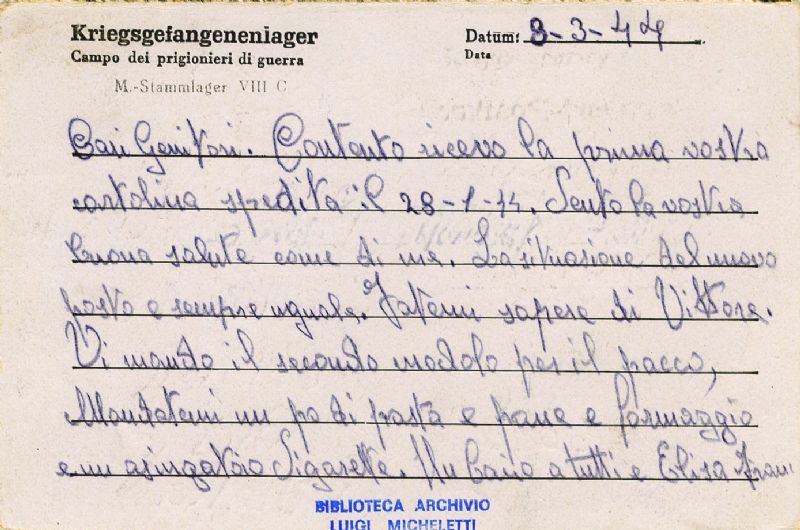 Kriegsgefangenenlager
Campo dei prigionieri di guerra
M.-Stammlager VIII C
Datum: 8-3-44
Data
Cari Genitori. Contento ricevo la prima vostra
cartolina spedita il 28-1-44. Sento la vostra
buona salute come di me. La situasione del nuovo
posto e sempre uguale. Fatemi sapere di Vittore.
Vi mando il secondo modolo per il pacco,
Mandatemi un po di pasta e pane e formaggio
e un asingatoio Sigarette. Un bacio a tutti e Elisa
BIBLIOTECA ARCHIVIO
LUIGI MICHELETTI